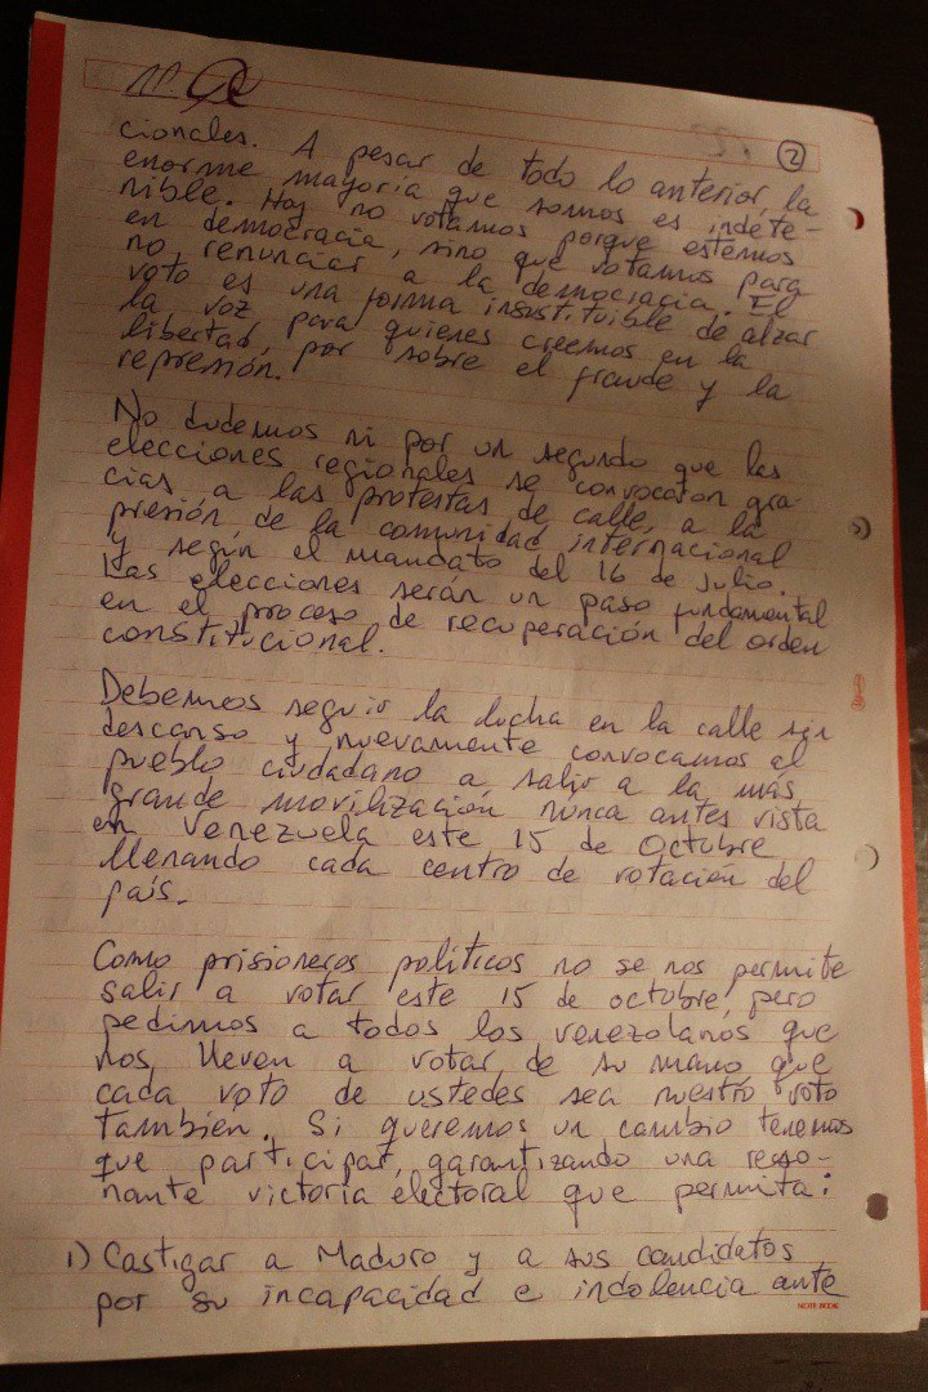 2
cionales. A pesar de todo lo anterior, la
enorme mayoría que somos es indete-
nible. Hoy no votamos porque estemos
en democracia, sino que votamos para
no renunciar a la democracia. El
voto es una forma insustituible de alzar
la voz para quienes creemos en la
libertad, por sobre el fraude y la
represión.
No dudemos ni por un segundo que las
elecciones regionales se convocaron gra-
cias a las protestas de calle, a la
presión de la comunidad internacional
y según el mandato del 16 de Julio.
Las elecciones serán un paso fundamental
en el proceso de recuperación del orden
constitucional.
Debemos seguir la lucha en la calle sin
descanso y nuevamente convocamos al
pueblo ciudadano a salir a la más
grande movilización nunca antes vista
en Venezuela este 15 de Octubre
llenando cada centro de votación del
país.
Como prisioneros políticos no se nos permite
salir a votar este 15 de octubre, pero
pedimos a todos los venezolanos que
nos lleven a votar de su mano, que
cada voto de ustedes sea nuestro voto
también. Si queremos un cambio tenemos
que participar, garantizando una reso-
nante victoria electoral que permita:
1) Castigar a Maduro y a sus candidatos
por su incapacidad e indolencia ante
NOTE BOOK